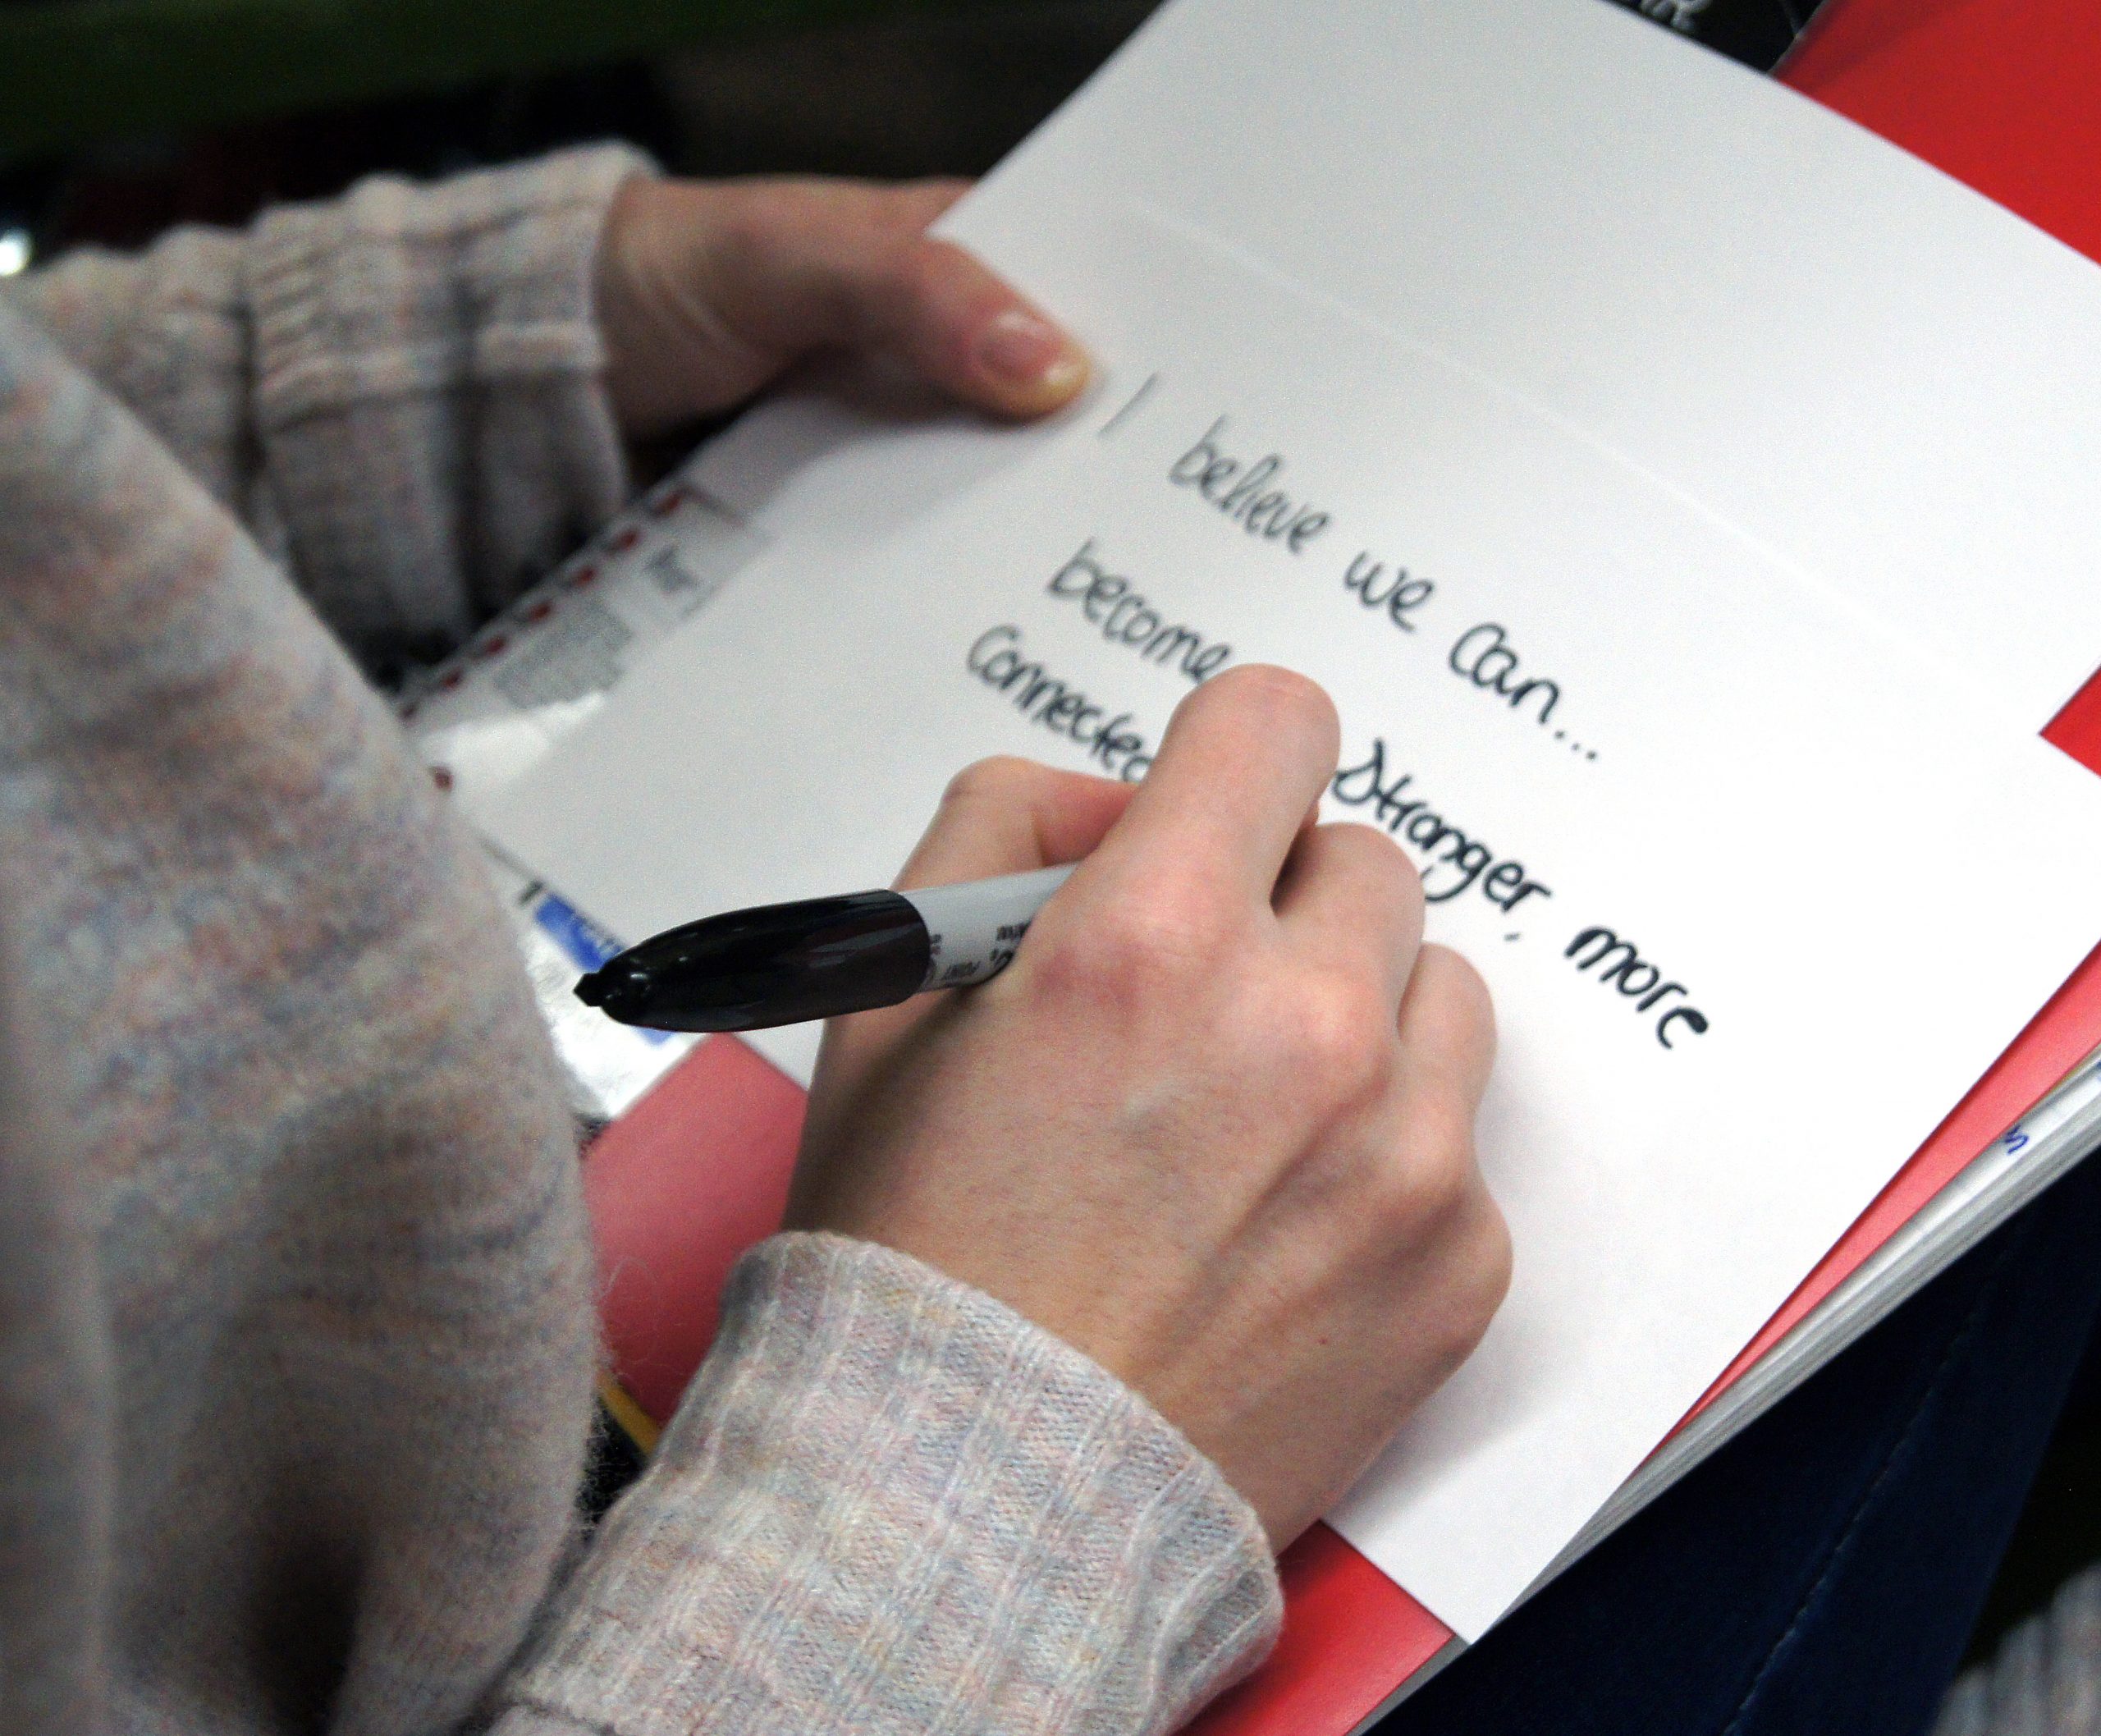 I believe we can...
become Stronger, more
Connected
for
POINT